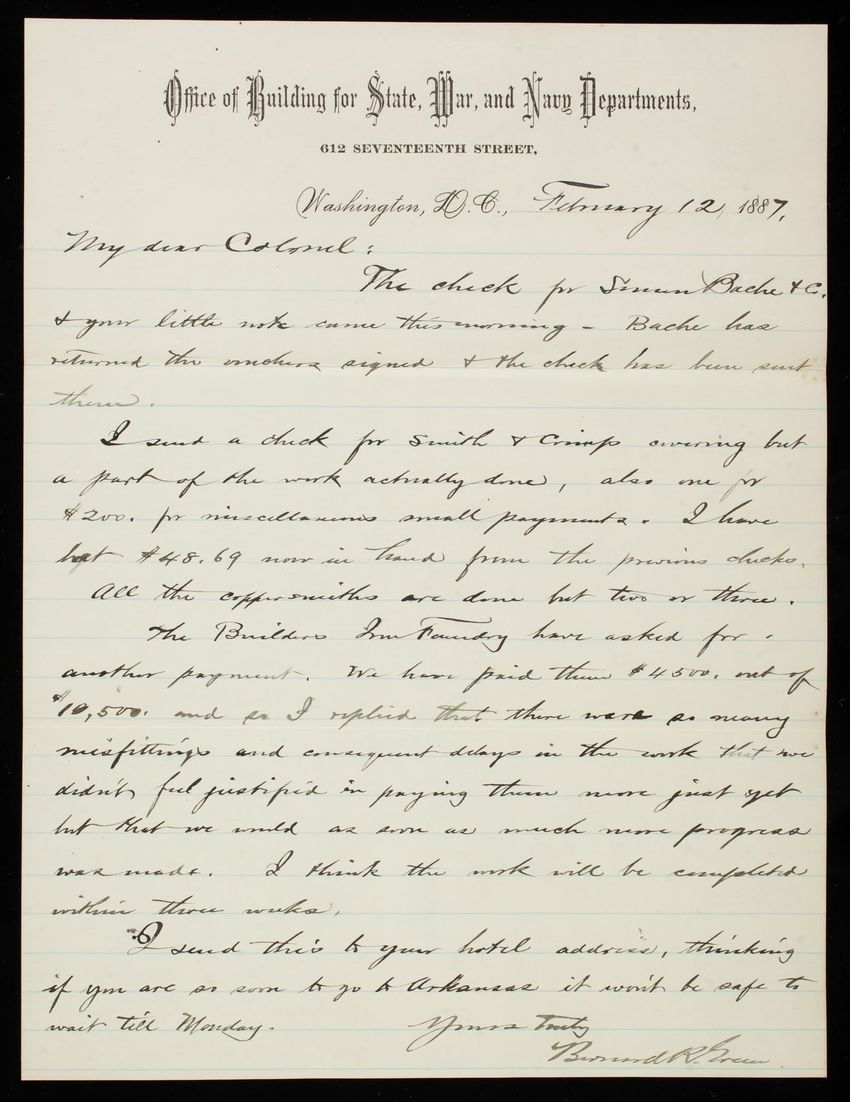 Office of Building for State, War, and Navy Departments,
612 SEVENTEENTH STREET,
Washington, D.C., February 12, 1887,
My dear Colonel:
The check for Simon Bache & Co.
& your little note came this morning - Bache has
returned the vouchers signed & the check has been sent
them.
I send a check for Smith & Crimp covering but
a part of the work actually done, also one for
$200. for miscellaneous small payments. I have
but $48.69 now in hand from the previous checks.
All the coppersmiths are done but two or three.
The Builders Iron Foundry have asked for
another payment. We have paid them $4500. out of
$10,500. and so I replied that there were so many
misfittings and consequent delays in the work that we
didn't feel justified in paying them more just yet
but that we would as soon as much more progress
was made. I think the work will be completed
within three weeks.
I send this to your hotel address, thinking
if you are so soon to go to Arkansas it won't be safe to
wait till Monday. Yours truly
Bernard R. Green